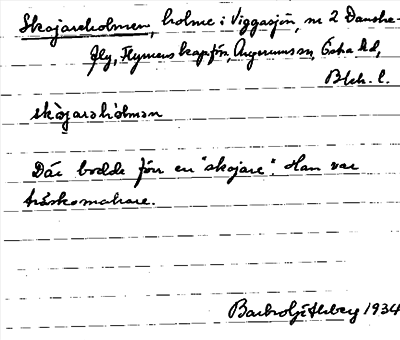 Skojareholmen, holme i Viggasjön, nr 2 Danske-
fly, Flymens kapnfön, Augerums sn, Östra hd,
Blek. l.
skòjaraholman
Där bodde förr en "skojare". Han var
träskomakare.
1934